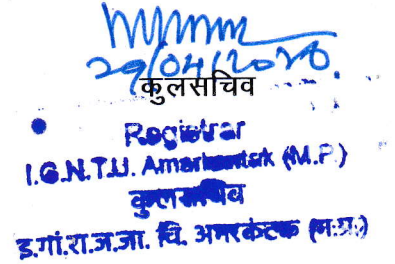 29/04/2020
कुलसचिव
Registrar
I.G.N.T.U. Amarkantak (M.P.)
कुलसचिव
इ.गां.रा.ज.जा. वि. अमरकंटक (म.प्र.)